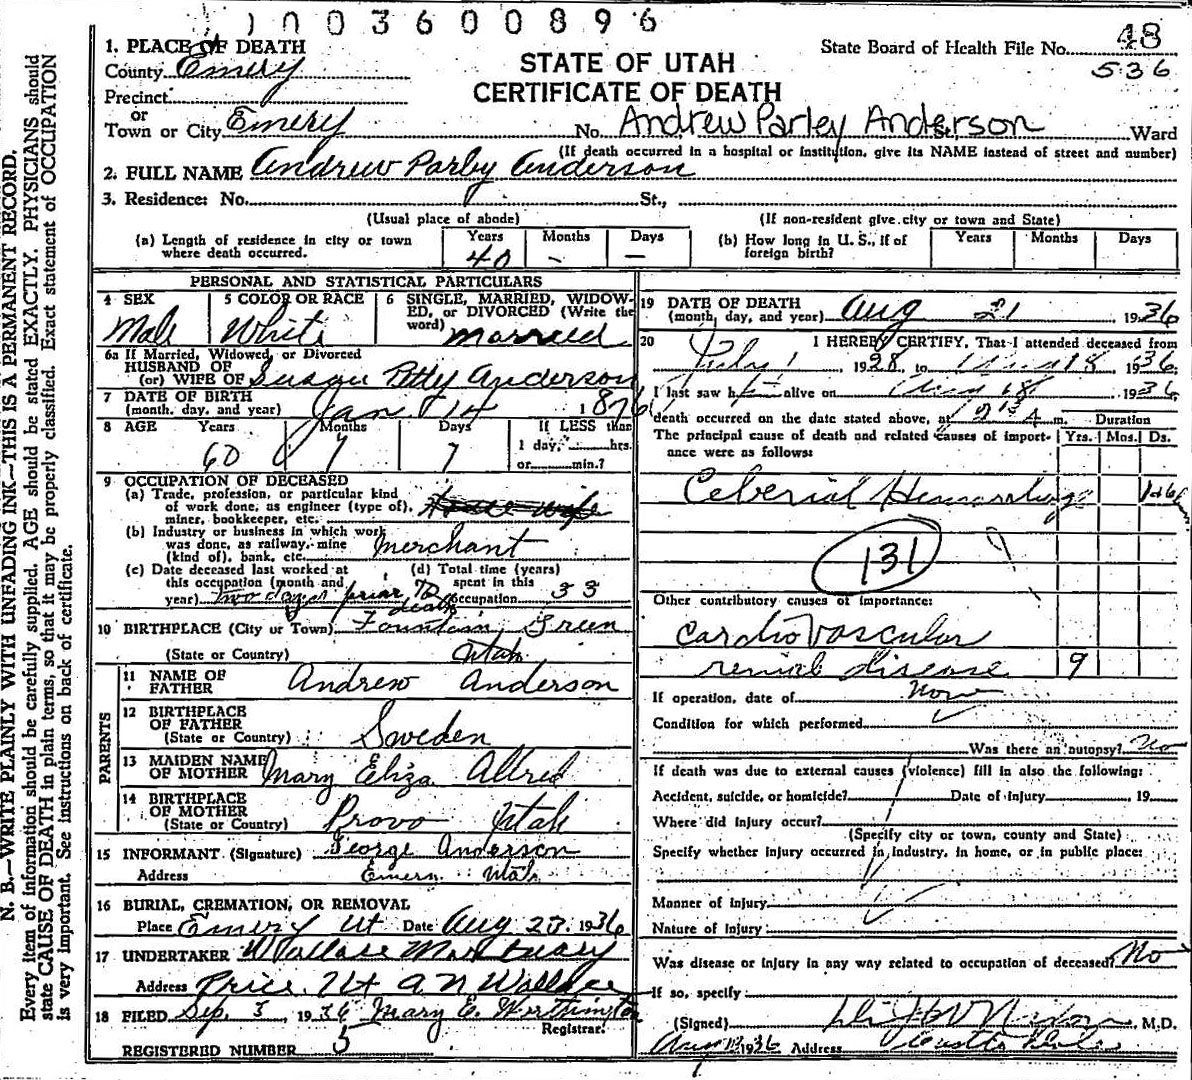 1003600896
1. PLACE OF DEATH
County Emery
Precinct
or
Town or City Emery
STATE OF UTAH
CERTIFICATE OF DEATH
State Board of Health File No. 48
536
No. Andrew Parley Anderson St., Ward
(If death occurred in a hospital or institution, give its NAME instead of street and number)
2. FULL NAME Andrew Parley Anderson
3. Residence: No. St.,
(Usual place of abode) (If non-resident give city or town and State)
(a) Length of residence in city or town where death occurred. Years 40 Months - Days -
(b) How long in U. S., if of foreign birth? Years Months Days
PERSONAL AND STATISTICAL PARTICULARS
4 SEX Male
5 COLOR OR RACE White
6 SINGLE, MARRIED, WIDOWED, or DIVORCED (Write the word) Married
6a If Married, Widowed, or Divorced
HUSBAND OF
(or) WIFE OF Susan Petty Anderson
7 DATE OF BIRTH
(month, day, and year) Jan 14 1876
8 AGE Years 60 Months 7 Days 7
If LESS than
1 day, hrs.
or min.?
9 OCCUPATION OF DECEASED
(a) Trade, profession, or particular kind
of work done, as engineer (type of),
miner, bookkeeper, etc. House wife
(b) Industry or business in which work
was done, as railway, mine
(kind of), bank, etc. Merchant
(c) Date deceased last worked at
this occupation (month and
year) two days prior to death
(d) Total time (years)
spent in this
occupation 33
10 BIRTHPLACE (City or Town) Fountain Green
(State or Country) Utah
PARENTS
11 NAME OF
FATHER Andrew Anderson
12 BIRTHPLACE
OF FATHER
(State or Country) Sweden
13 MAIDEN NAME
OF MOTHER Mary Eliza Allred
14 BIRTHPLACE
OF MOTHER
(State or Country) Provo Utah
15 INFORMANT (Signature) George Anderson
Address Emery Utah
16 BURIAL, CREMATION, OR REMOVAL
Place Emery Ut Date Aug 23 1936
17 UNDERTAKER Wallace Mortuary
Address Price, Ut A N Wallace
18 FILED Sep. 3, 1936 Mary E. Worthington
Registrar.
REGISTERED NUMBER 5
19 DATE OF DEATH
(month, day, and year) Aug 21, 1936
20 I HEREBY CERTIFY, That I attended deceased from
July 1 1928, to 18 1936;
I last saw h alive on Aug 18 1936
death occurred on the date stated above, at m. Duration
The principal cause of death and related causes of importance were as follows: Yrs. Mos. Ds.
Ceberial Hemorrhage
131
Other contributory causes of importance:
Cardiovascular
renial disease 9
If operation, date of None
Condition for which performed
Was there an autopsy? No
If death was due to external causes (violence) fill in also the following:
Accident, suicide, or homicide? Date of injury 19
Where did injury occur?
(Specify city or town, county and State)
Specify whether injury occurred in industry, in home, or in public place:
Manner of injury
Nature of injury
Was disease or injury in any way related to occupation of deceased? No
If so, specify
(Signed) Nixon, M.D.
1936 Address
N. B.—WRITE PLAINLY WITH UNFADING INK—THIS IS A PERMANENT RECORD.
Every item of information should be carefully supplied. AGE should be stated EXACTLY. PHYSICIANS should
state CAUSE OF DEATH in plain terms, so that it may be properly classified. Exact statement of OCCUPATION
is very important. See instructions on back of certificate.